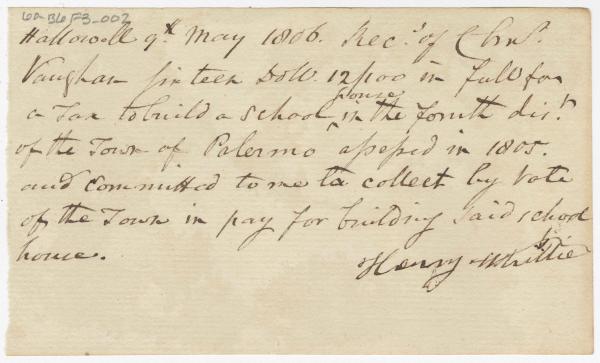 6a B6 F3_002
Hallowell 9th May 1806. Recd. of Chas.
Vaughan sixteen Doll. 12/100 in full for
a Tax to build a school house in the fourth dist.
of the Town of Palermo assessed in 1805.
and committed to me to collect by Vote
of the Town in pay for building said school
house.
Henry Whittier